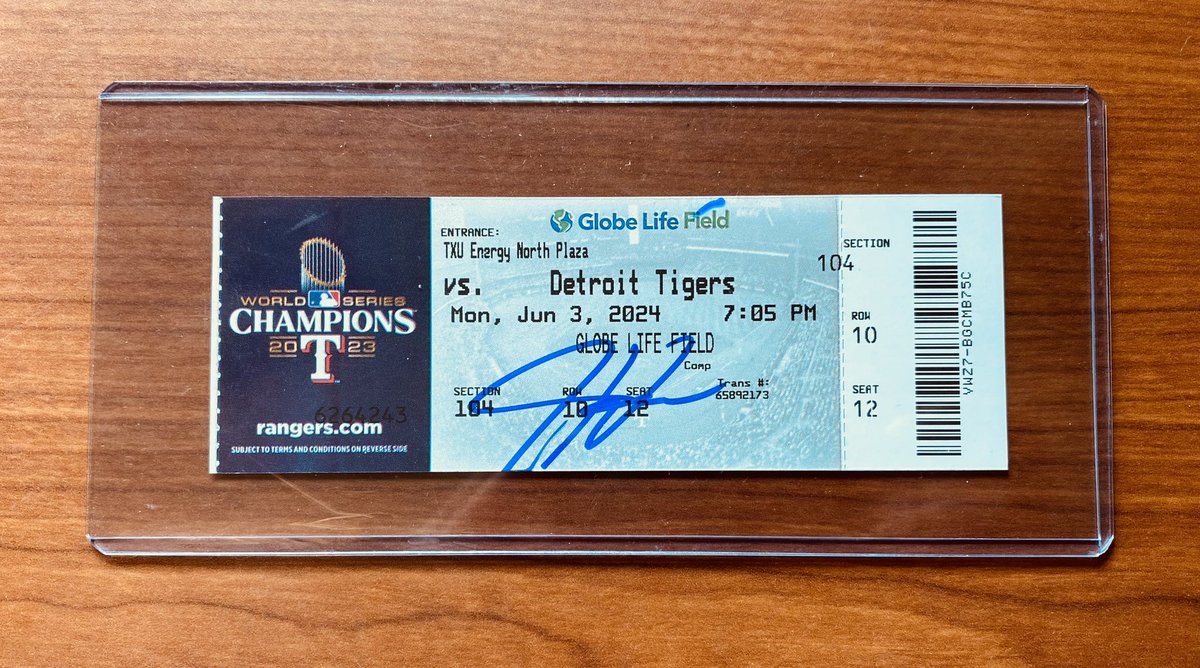 WORLD SERIES
CHAMPIONS
2023
T
6264243
rangers.com
SUBJECT TO TERMS AND CONDITIONS ON REVERSE SIDE
Globe Life Field
ENTRANCE:
TXU Energy North Plaza
vs. Detroit Tigers
Mon, Jun 3, 2024 7:05 PM
GLOBE LIFE FIELD
Comp
SECTION ROW SEAT Trans #:
104 10 12 65892173
SECTION
104
ROW
10
SEAT
12
VWZ7-BGCMB75C